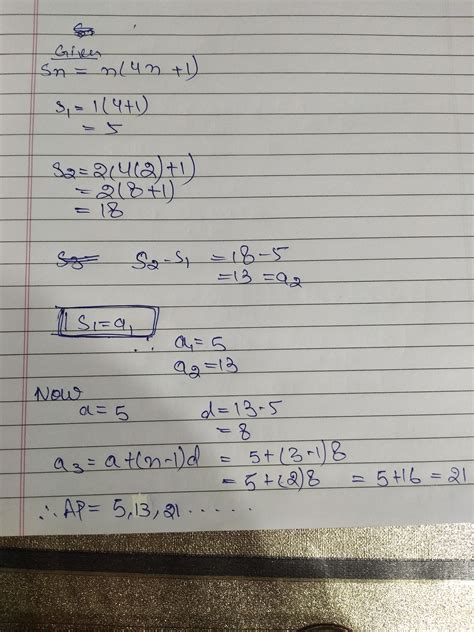 Given
Sn = n(4n+1)
S1 = 1(4+1)
= 5
S2 = 2(4(2)+1)
= 2(8+1)
= 18
S3 S2-S1 = 18-5
= 13 = a2
S1 = a1
∴ a1 = 5
a2 = 13
Now
a = 5 d = 13-5
= 8
a3 = a+(n-1)d = 5+(3-1)8
= 5+(2)8 = 5+16 = 21
∴ AP = 5, 13, 21 ......